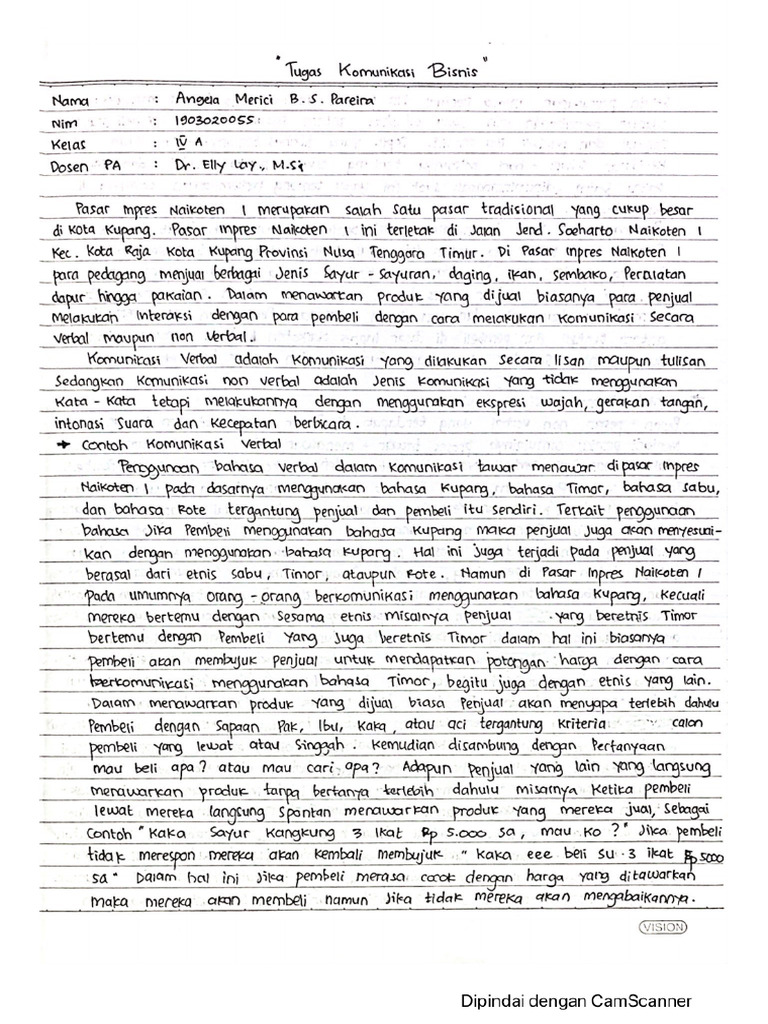 "Tugas Komunikasi Bisnis"
Nama : Angela Merici B. S. Pareira
Nim : 1903020055
Kelas : IV A
Dosen PA : Dr. Elly Lay., M.Si
Pasar Inpres Naikoten 1 merupakan salah satu pasar tradisional yang cukup besar
di Kota Kupang. Pasar Inpres Naikoten 1 ini terletak di Jalan Jend. Soeharto Naikoten 1
Kec. Kota Raja Kota Kupang Provinsi Nusa Tenggara Timur. Di Pasar Inpres Naikoten 1
para pedagang menjual berbagai Jenis Sayur-sayuran, daging, ikan, sembako, Peralatan
dapur hingga pakaian. Dalam menawarkan produk yang dijual biasanya para penjual
melakukan Interaksi dengan para pembeli dengan cara melakukan Komunikasi Secara
Verbal maupun non Verbal.
Komunikasi Verbal adalah Komunikasi yang dilakukan Secara lisan maupun tulisan
Sedangkan Komunikasi non verbal adalah Jenis Komunikasi yang tidak menggunakan
Kata-Kata tetapi melakukannya dengan menggunakan ekspresi wajah, gerakan tangan,
intonasi Suara dan Kecepatan berbicara.
→ Contoh Komunikasi Verbal
Penggunaan bahasa verbal dalam Komunikasi tawar menawar di pasar Inpres
Naikoten 1 pada dasarnya menggunakan bahasa Kupang, bahasa Timor, bahasa sabu,
dan bahasa Rote tergantung penjual dan pembeli itu sendiri. Terkait penggunaan
bahasa Jika Pembeli menggunakan bahasa Kupang maka penjual Juga akan menyesuai-
kan dengan menggunakan bahasa Kupang. Hal ini juga terjadi pada penjual yang
berasal dari etnis sabu, Timor, ataupun Rote. Namun di Pasar Inpres Naikoten 1
Pada umumnya orang-orang berkomunikasi menggunakan bahasa Kupang, Kecuali
mereka bertemu dengan Sesama etnis misalnya penjual yang beretnis Timor
bertemu dengan Pembeli Yang Juga beretnis Timor dalam hal ini biasanya
pembeli akan membujuk penjual untuk mendapatkan potongan harga dengan cara
berkomunikasi menggunakan bahasa Timor, begitu juga dengan etnis yang lain.
Dalam menawarkan produk yang dijual biasa Penjual akan menyapa terlebih dahulu
Pembeli dengan Sapaan Pak, Ibu, Kaka, atau aci tergantung Kriteria calon
pembeli yang lewat atau Singgah. Kemudian disambung dengan Pertanyaan
mau beli apa? atau mau cari apa? Adapun Penjual yang lain yang langsung
menawarkan produk tanpa bertanya terlebih dahulu misalnya Ketika pembeli
lewat mereka langsung Spontan menawarkan produk yang mereka jual, Sebagai
Contoh "Kaka Sayur Kangkung 3 Ikat Rp 5.000 sa, mau Ko?" Jika pembeli
tidak merespon mereka akan kembali membujuk " Kaka eee beli Su 3 ikat Rp 5000
sa" Dalam hal ini Jika pembeli merasa cocok dengan harga yang ditawarkan
maka mereka akan membeli namun Jika tidak mereka akan mengabaikannya.
VISION
Dipindai dengan CamScanner